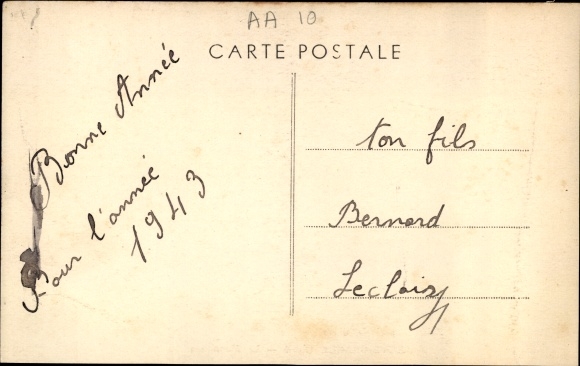 AA 10
CARTE POSTALE
Bonne Année
Pour l'année
1943
ton fils
Bernard